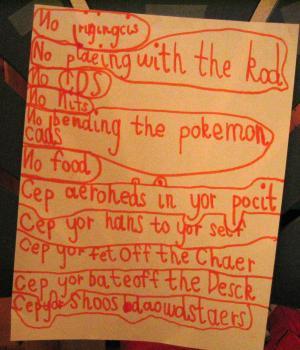 No jrigingcis
No plaeing with the kods
No CDS
No Kits
No bending the pokemon
cads
No food
Cep aeroheds in yor pocit
Cep yor hans to yor self
Cep yor fet off the Chaer
Cep yor bate off the Desck
Cep yor shoos daowdstaers